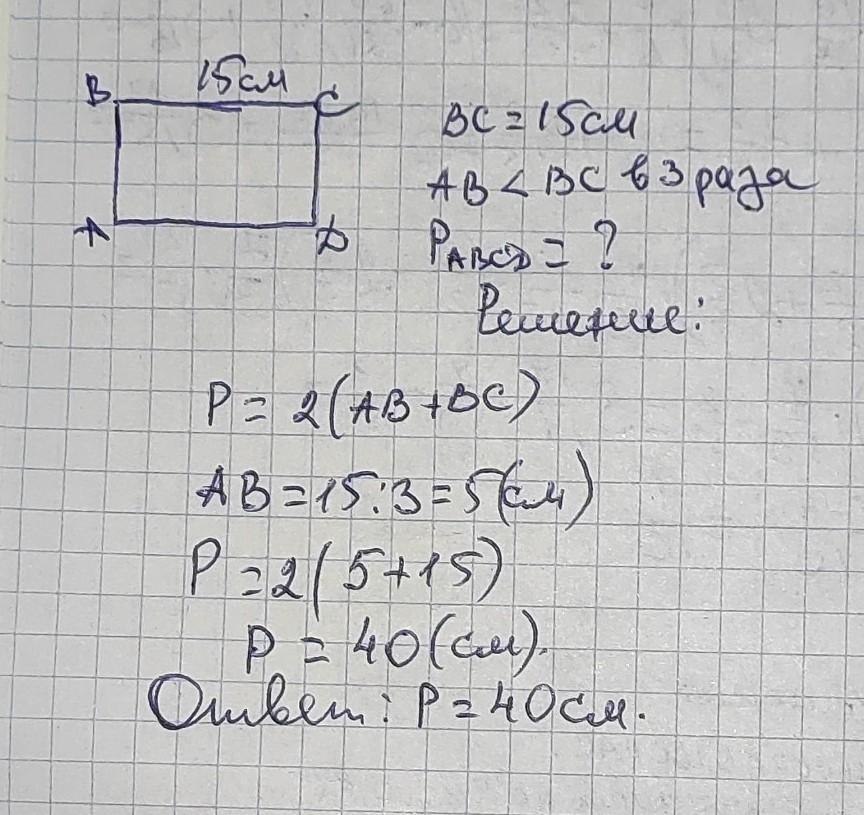 15см
B C
A D
BC = 15см
AB < BC в 3 раза
PABCD = ?
Решение:
P = 2(AB + BC)
AB = 15 : 3 = 5(см)
P = 2(5 + 15)
P = 40(см).
Ответ: P = 40см.